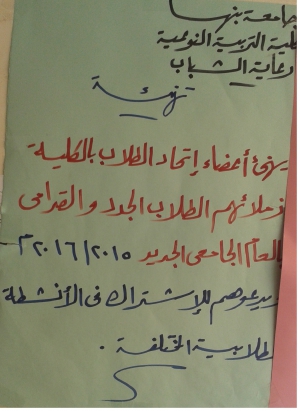 جامعة بنها
كلية التربية النوعية
رعاية الشباب
تهنئة
يهنئ أعضاء إتحاد الطلاب بالكلية
زملائهم الطلاب الجدد والقدامى
بالعام الجامعى الجديد ٢٠١٥/٢٠١٦م
ويدعوهم للإشتراك فى الأنشطة
الطلابية المختلفة .